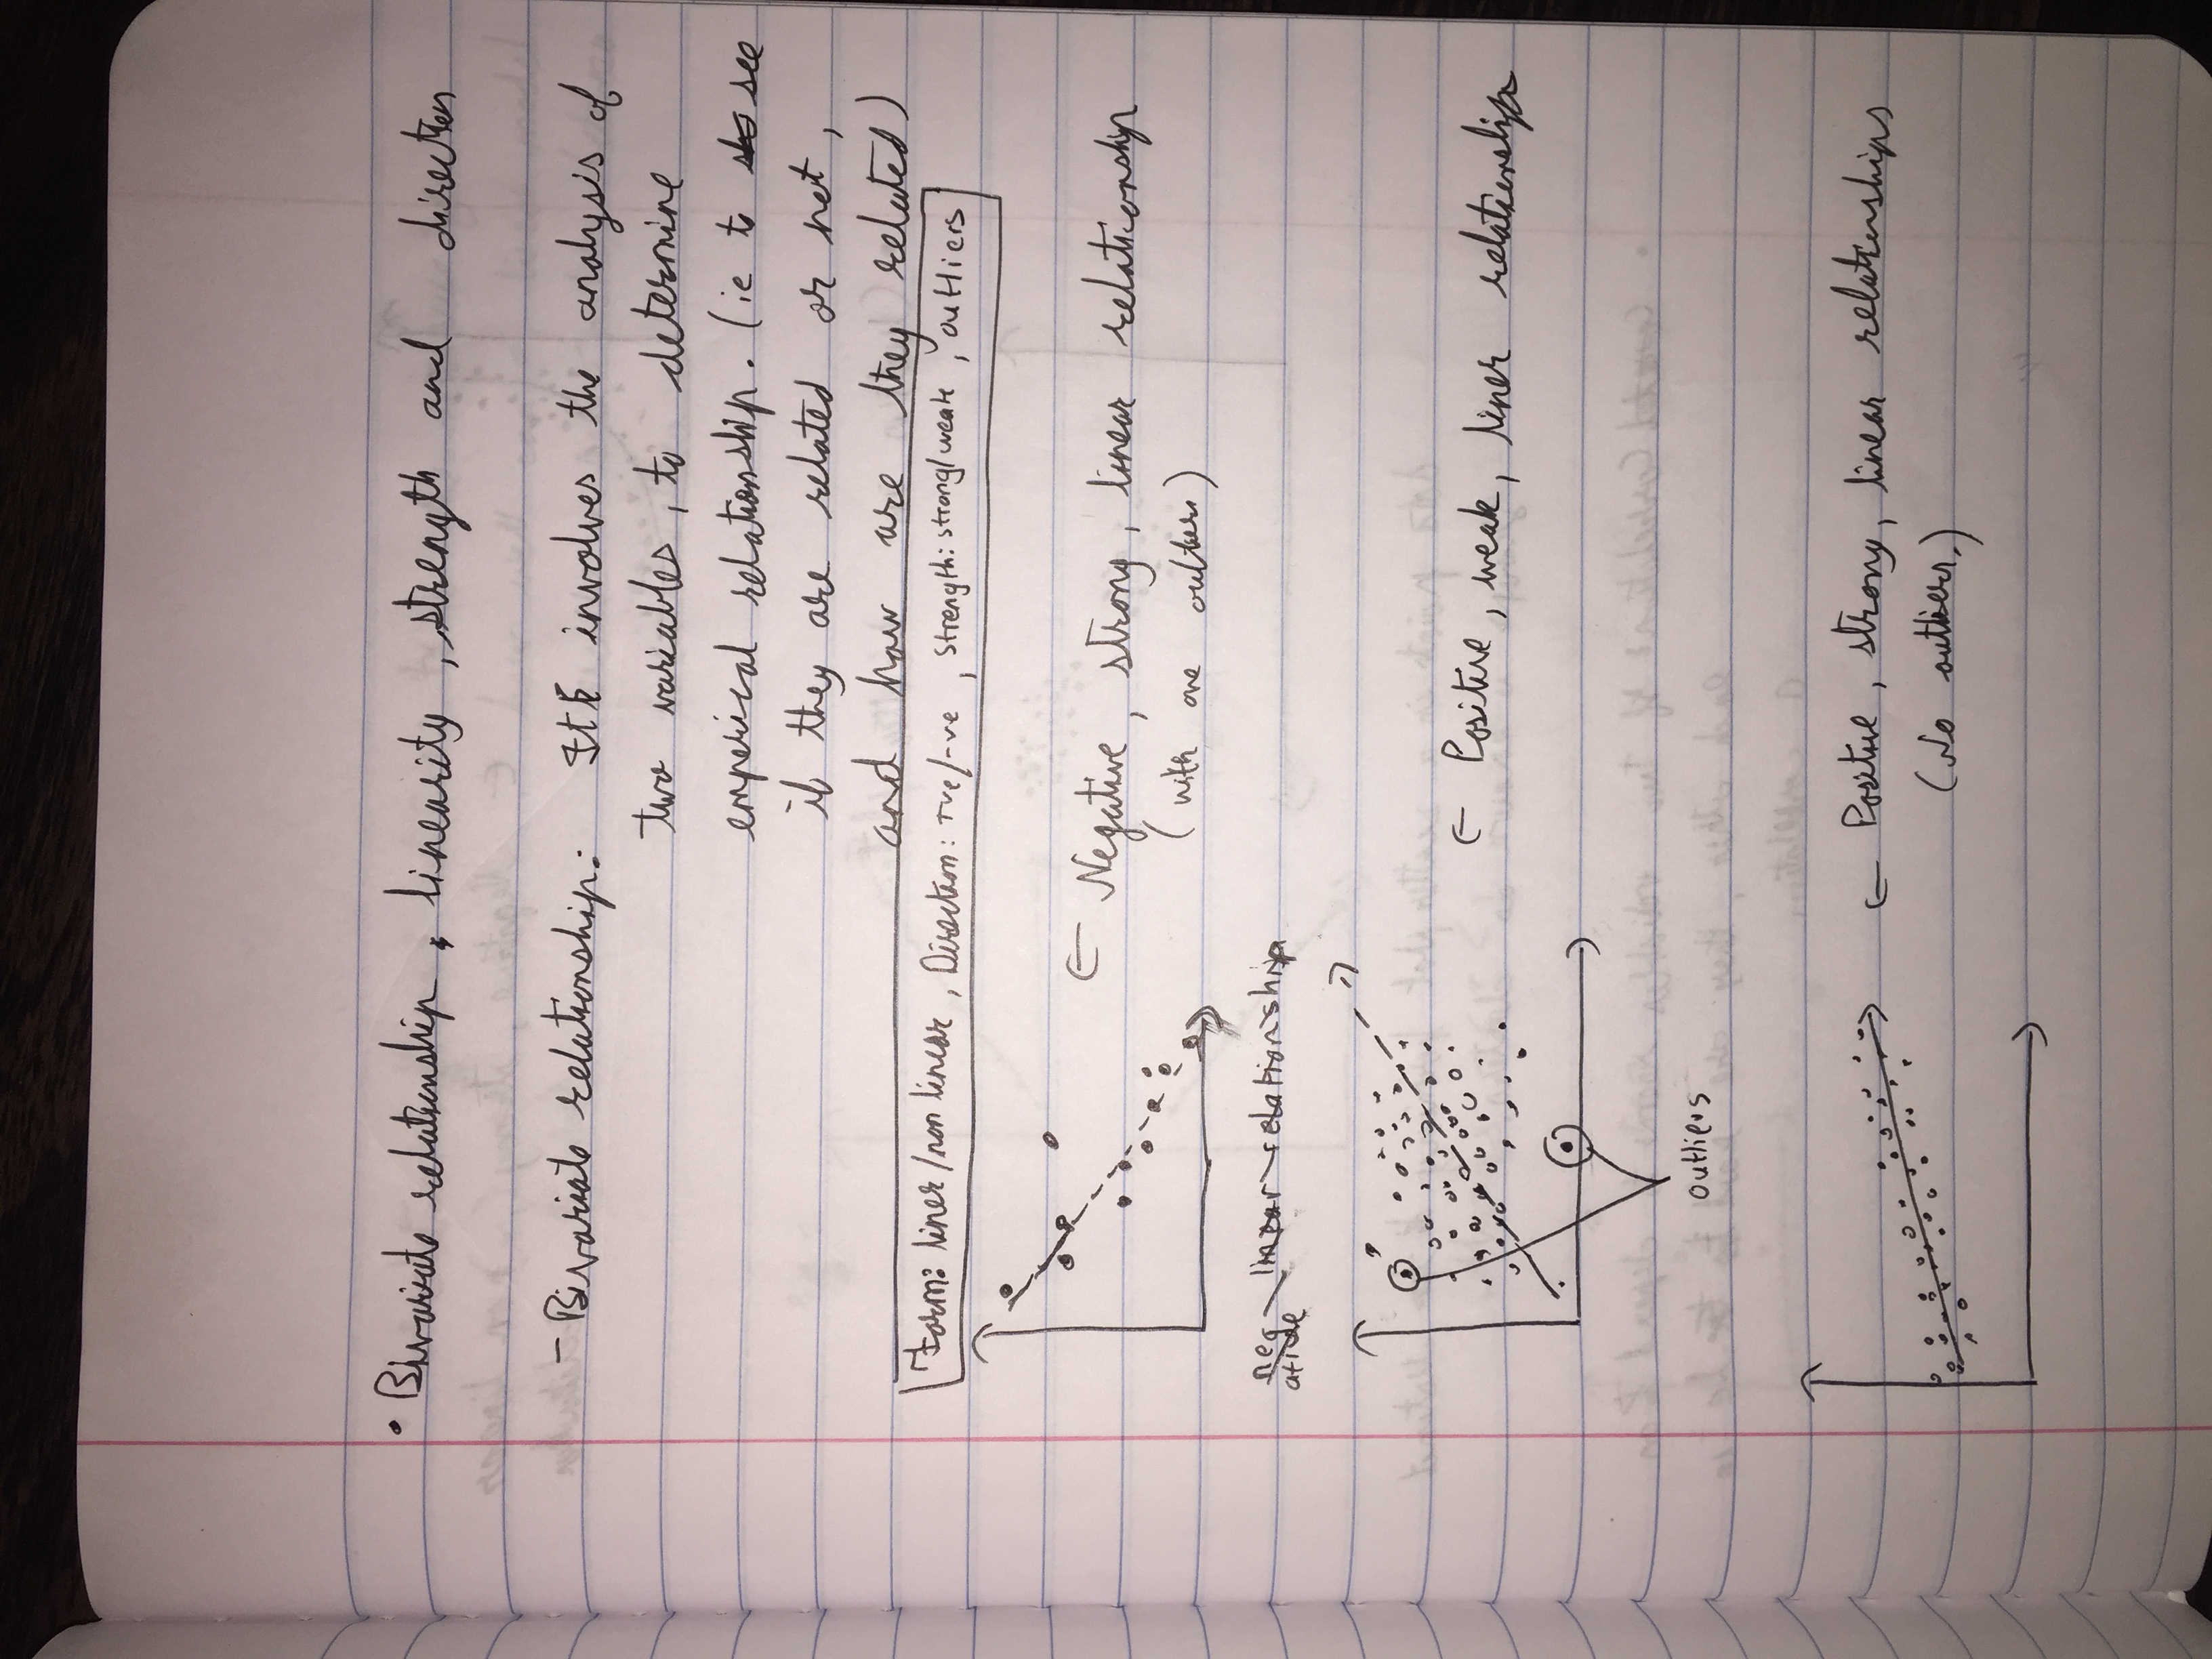 • Bivariate relationship, linearity, strength and direction
- Bivariate relationship: It involves the analysis of
two variables, to determine
emperical relationship. (ie to see
if they are related or not,
and how are they related)
Form: liner/non linear, Direction: +ve/-ve, Strength: strong/weak, outliers
← Negative, strong, linear relationship
(with one outliers)
negative linear relationship
← Positive, weak, liner relationship
outliers
← Positive, strong, linear relationships
(No outliers.)